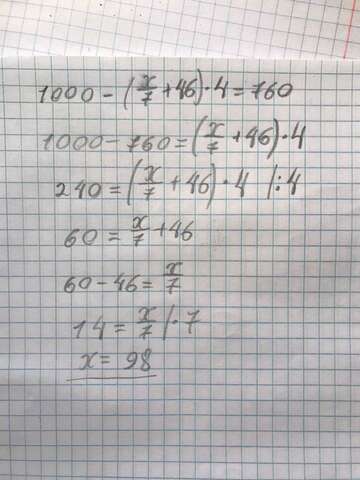 1000 - (x/7 + 46) · 4 = 760
1000 - 760 = (x/7 + 46) · 4
240 = (x/7 + 46) · 4 /:4
60 = x/7 + 46
60 - 46 = x/7
14 = x/7 /· 7
x = 98